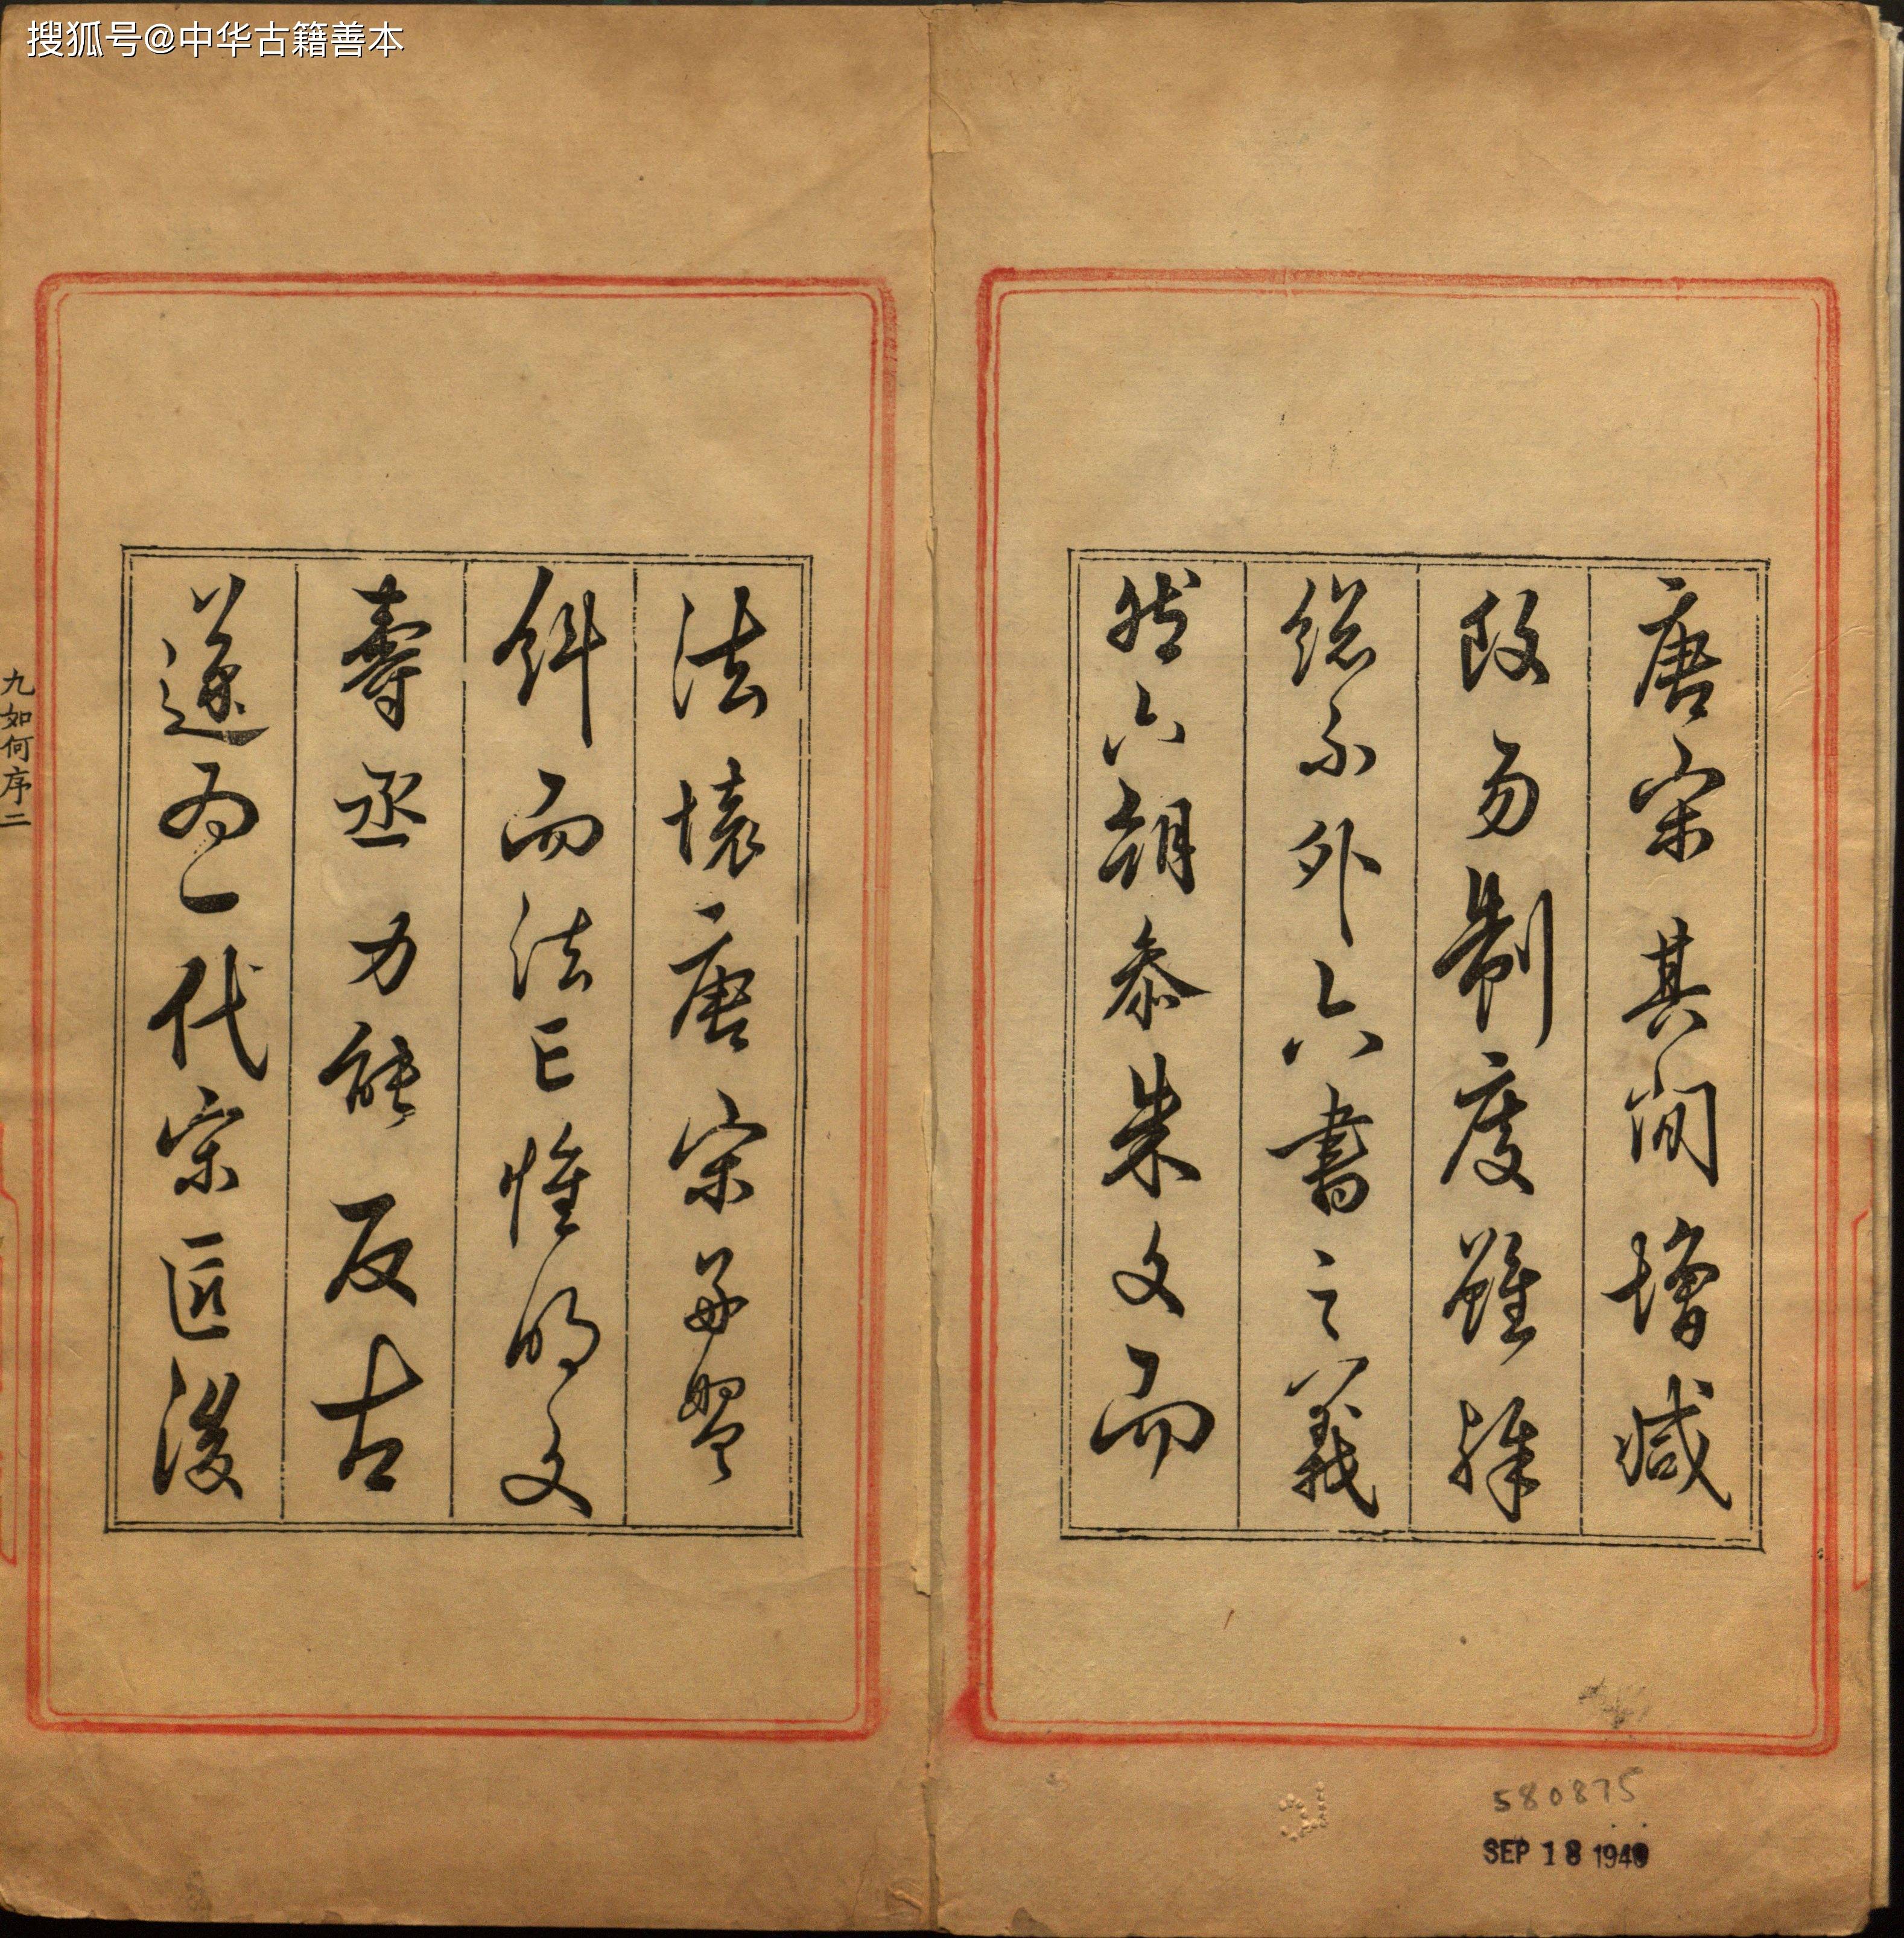 搜狐号@中华古籍善本
唐宋其間增減
改易制度雖殊
總不外六書之義
然六朝叅朱文而
法壞唐宋多盤
而法亡惟明文
壽丞力能反古
遂為一代宗匠後
九如何序二
580875
SEP 18 1940